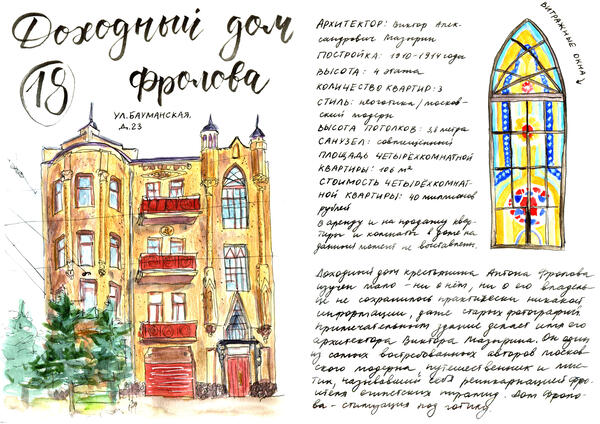 Доходный дом
18
Фролова
ул.Бауманская,
д.23
Архитектор: Виктор Алек-
сандрович Мазырин
Постройка: 1910-1914 годы
Высота: 4 этажа
Количество квартир: 3
Стиль: неоготика/москов-
ский модерн
Высота потолков: 3,8 метра
Санузел: совмещённый
Площадь четырёхкомнатной
квартиры: 106 м²
Стоимость четырёхкомнат-
ной квартиры: 40 миллионов
рублей
В аренду и на продажу квар-
тиры и комнаты в доме на
данный момент не выставлены.
Витражные окна
Доходный дом крестьянина Антона Фролова
изучен мало - ни о нём, ни о его владель-
це не сохранилось практически никакой
информации, даже старых фотографий
Примечательным здание делает имя его
архитектора Виктора Мазырина. Он один
из самых востребованных авторов москов-
ского модерна, путешественник и мис-
тик, называвший себя реинкарнацией стро-
ителя египетских пирамид. Дом Фроло-
ва - стилизация под готику.